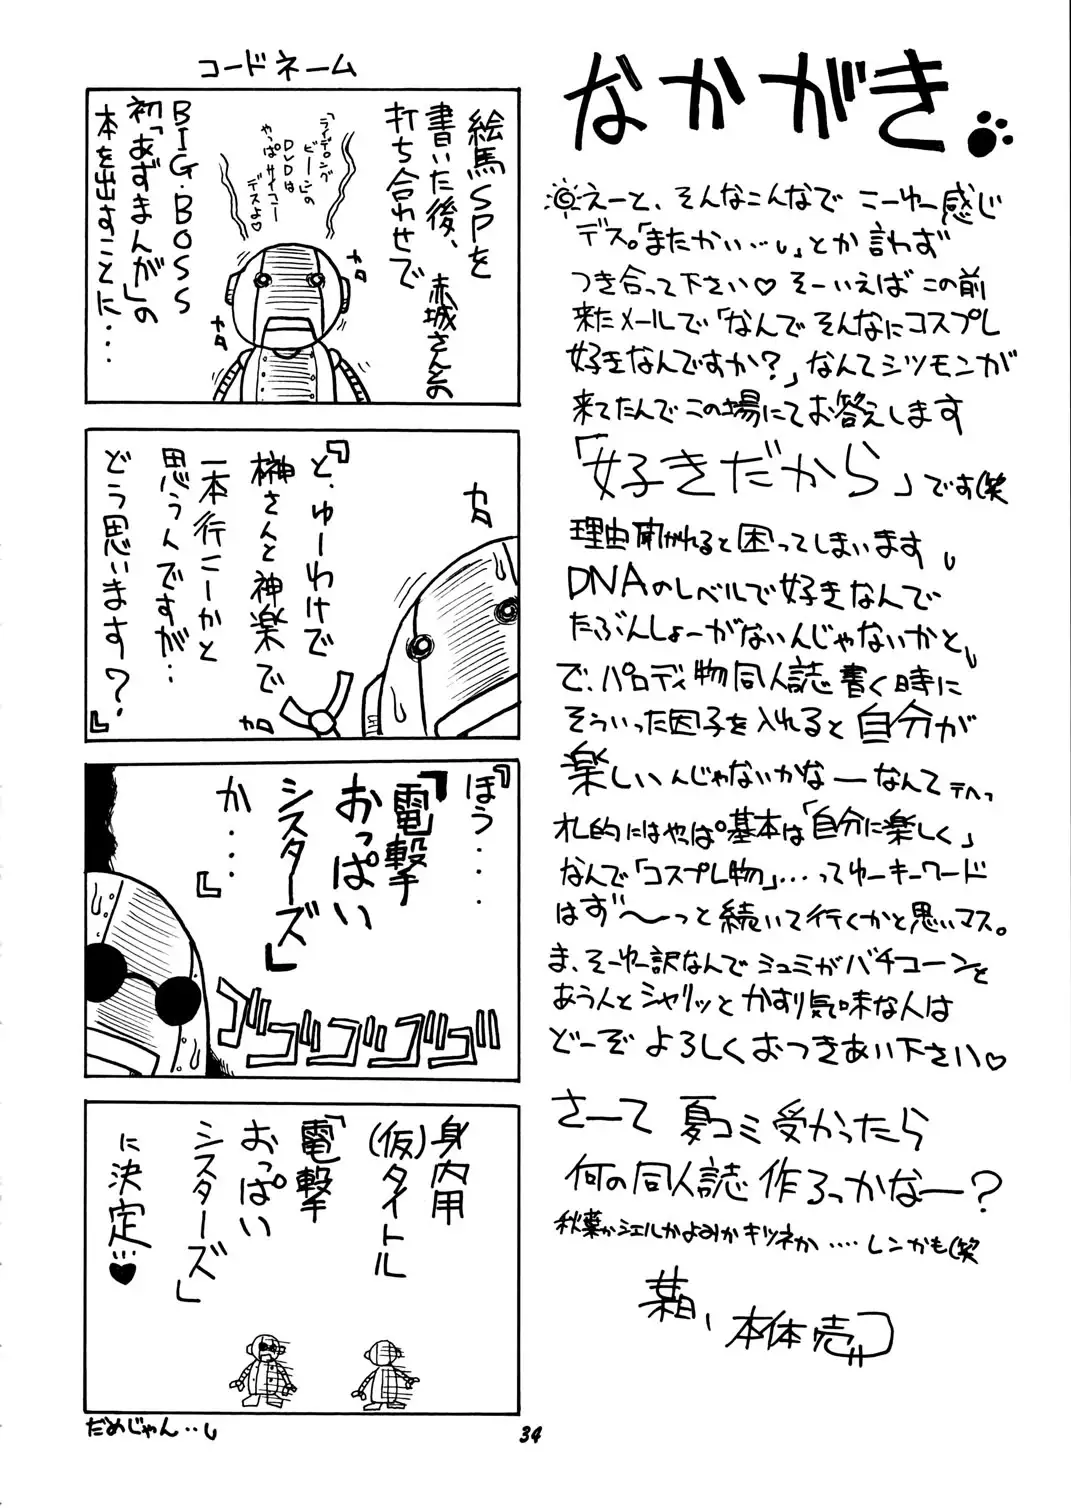 なかがき
えーと、そんなこんなで こーゆー感じ
デス。「またかい…」とか言わず
つき合って下さい♡ そーいえば この前
来たメールで「なんで そんなにコスプレ
好きなんですか?」なんてシツモンが
来てたんで この場にてお答えします
「好きだから」です(笑
理由聞かれると困ってしまいます
DNAのレベルで好きなんで
たぶんしょーがないんじゃないかと
で、パロディ物同人誌書く時に
そういった因子を入れると自分が
楽しいんじゃないかなーなんて
的にはやっぱ基本は「自分に楽しく」
なんで「コスプレ物」…ってゆーキーワード
はず〜っと続いて行くかと思いマス。
ま、そーゆー訳なんで ミュミがバチコーンと
あう人と シャリッと かすり気味な人は
どーぞ よろしくおつきあい下さい♡
さーて 夏コミ受かったら
何の同人誌 作ろっかなー?
秋葉かシエルかよみかキツネか ‥‥レンかも(笑
本体売
コードネーム
絵馬SPを
書いた後、赤城さんとの
打ち合わせで
「ライデング
ビーン」の
DVDは
やっぱサイコー
デスよ♡
カタ
カタ
BIG・BOSS
初「あずまんが」の
本を出すことに…
『と、ゆーわけで
榊さんと神楽で
一本行こーかと
思うんですが‥
どう思います?』
カタ
カタ
『ほう‥‥
「電撃
おっぱい
シスターズ」
か…』
ゴゴゴゴゴ
身内用
(仮)タイトル
「電撃
おっぱい
シスターズ」
に決定…♥
だめじゃん‥
34